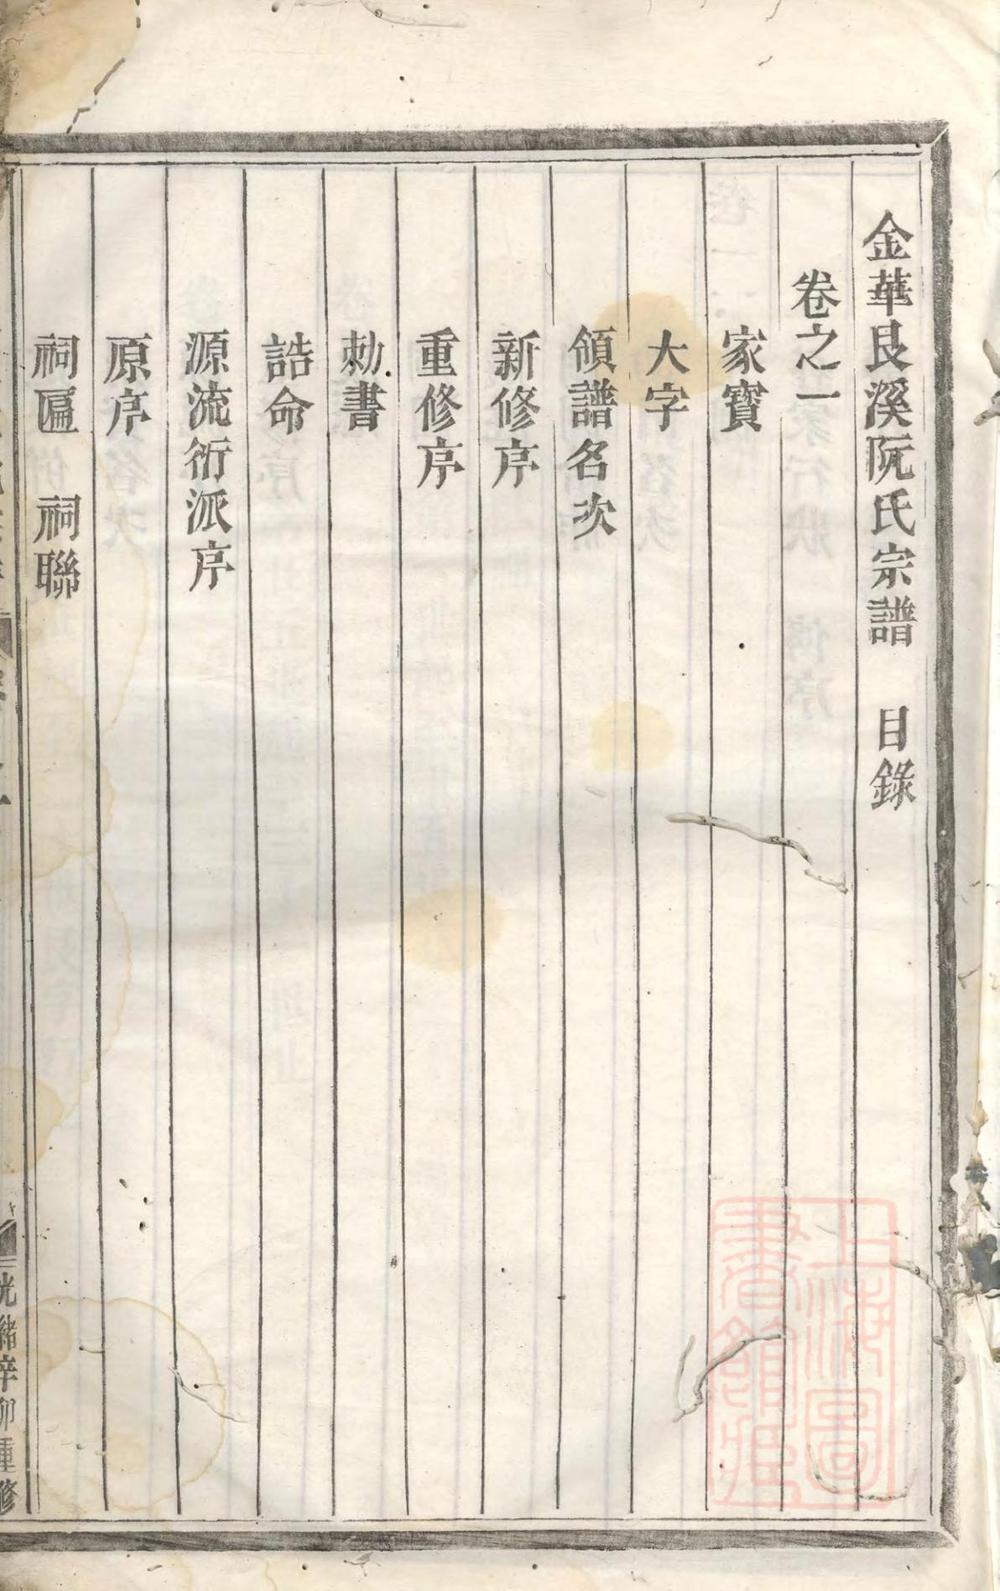 金華艮溪阮氏宗譜　目錄
卷之一
家寶
大字
領譜名次
新修序
重修序
勅書
誥命
源流衍派序
原序
祠匾　祠聯
光緒辛卯重修
上海圖書館藏